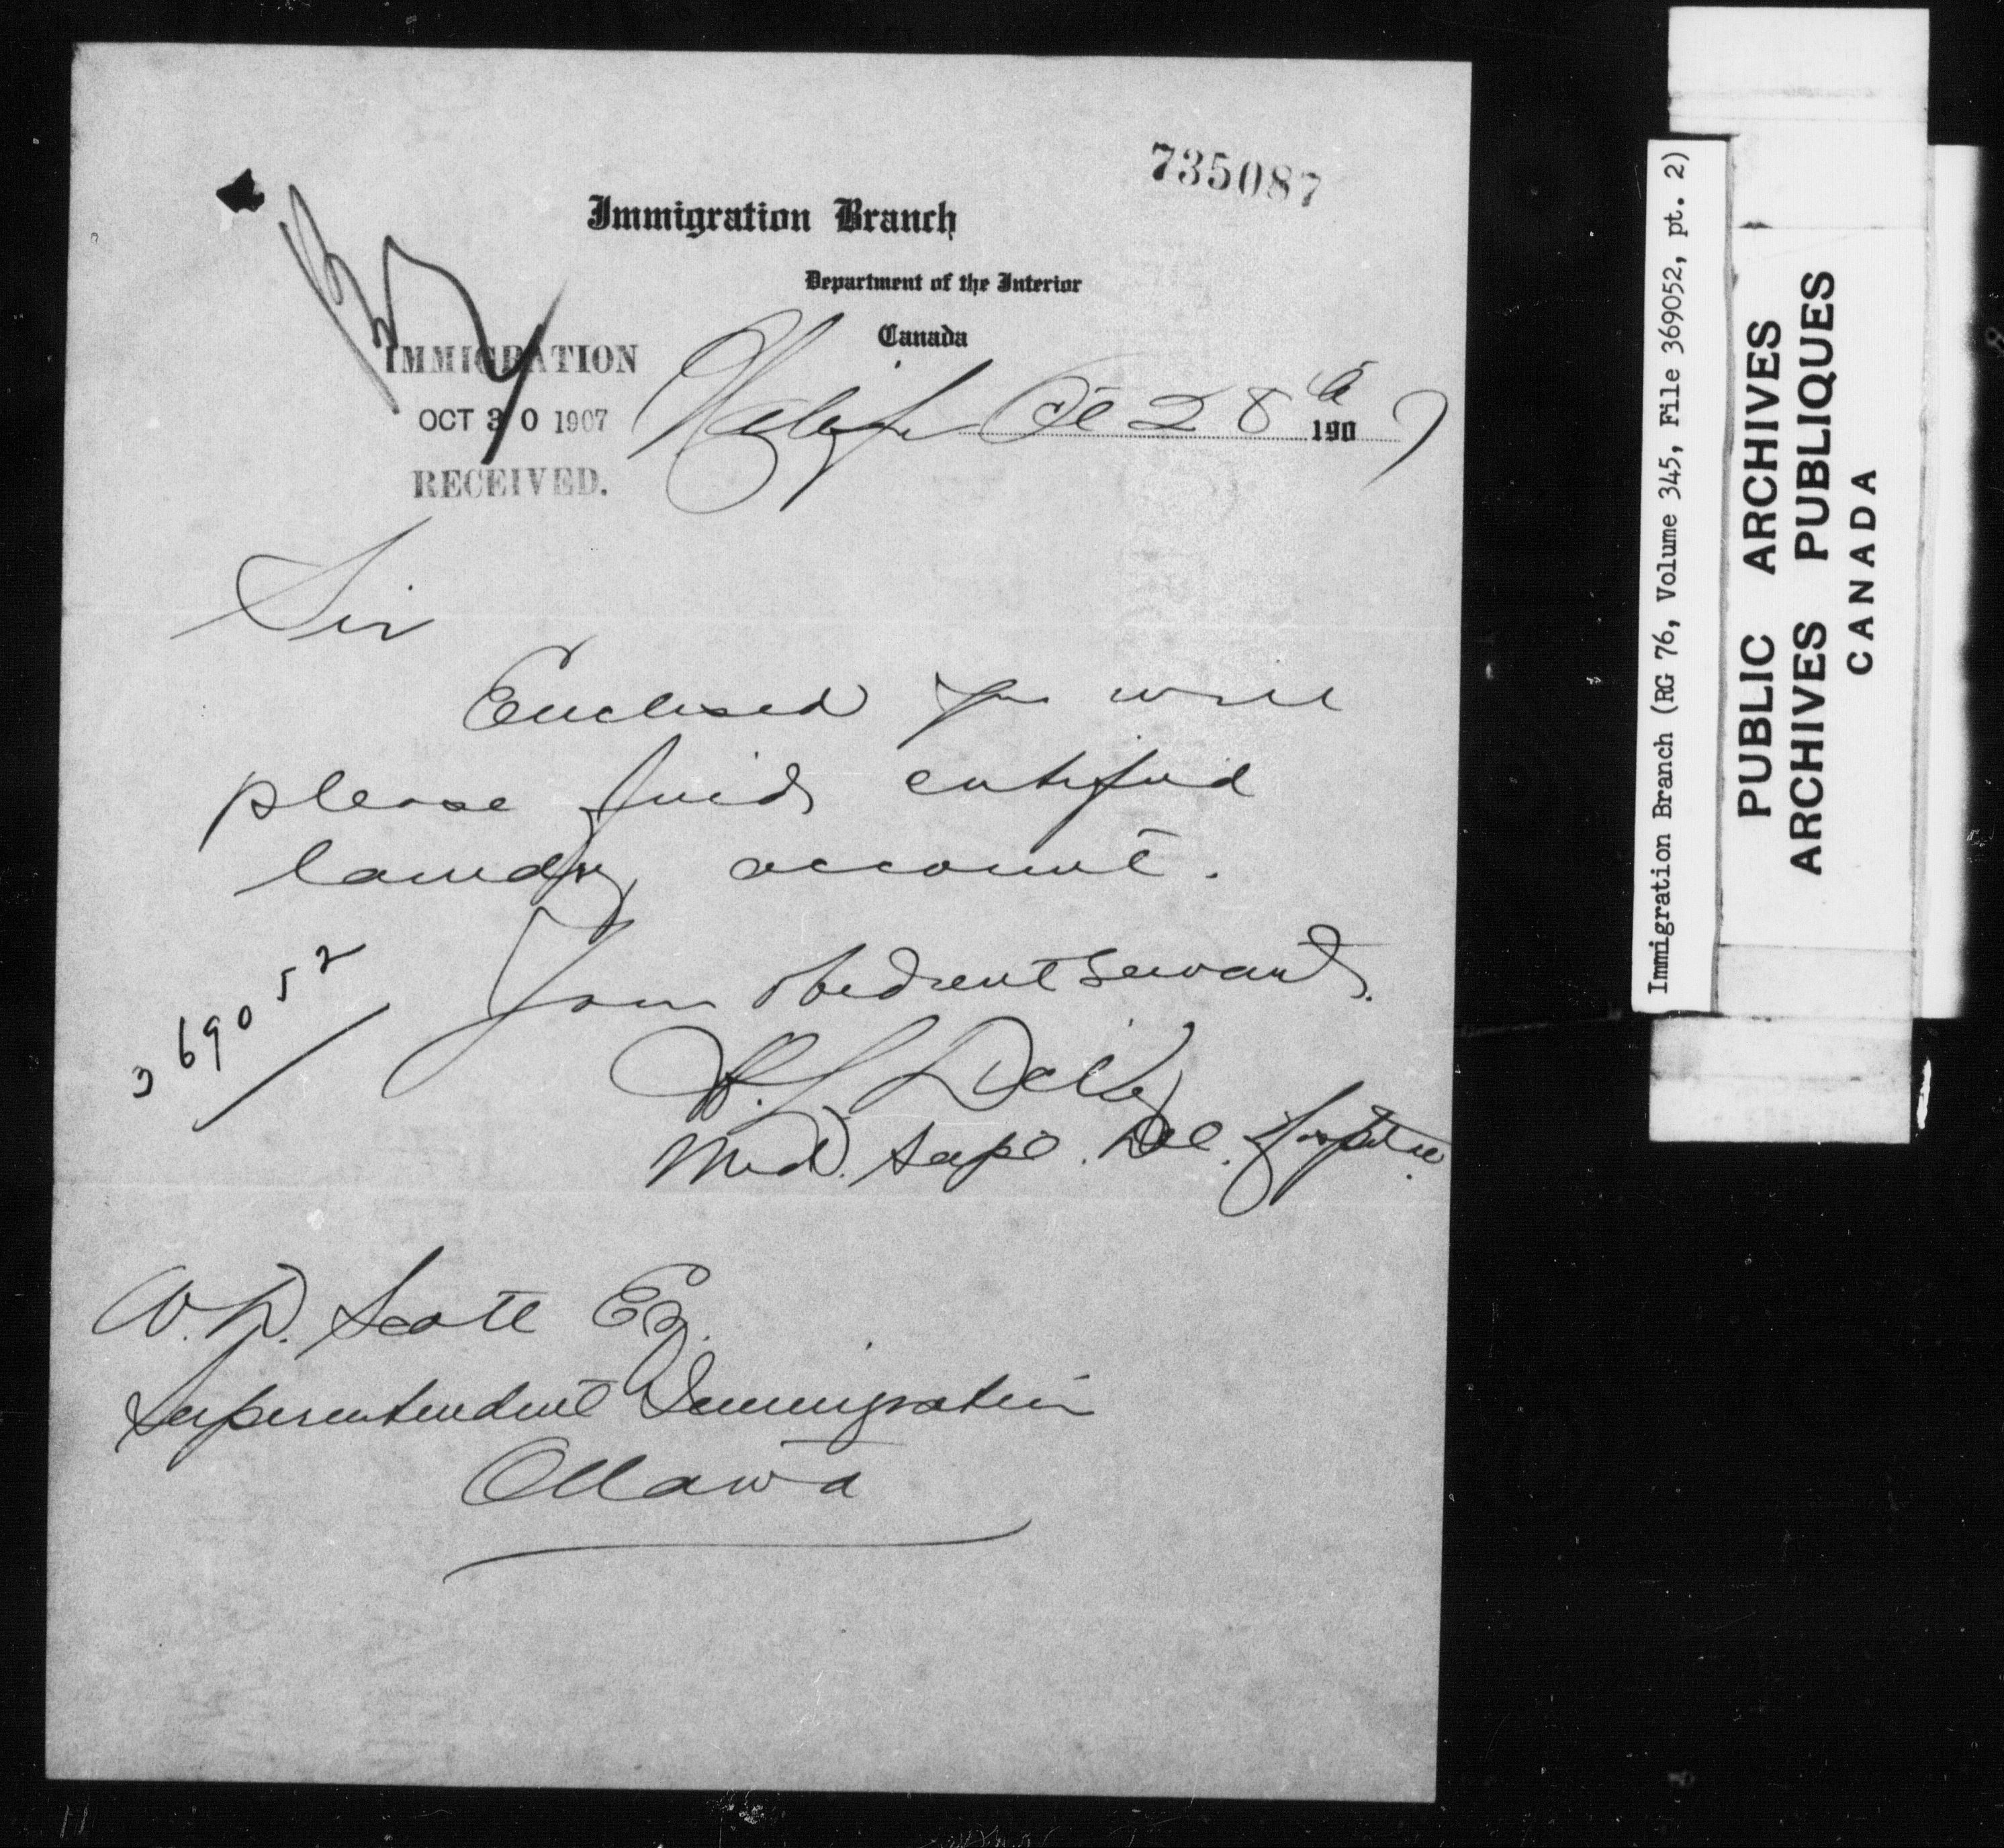 735087
Immigration Branch
Department of the Interior
Canada
IMMIGRATION
OCT 30 1907
RECEIVED.
Halifax Oct 28th 1907
Sir
Enclosed you will
please find certified
laundry account.
Your obedient servant.
369052
Med. Supt. Det. Hospital.
W. D. Scott Esq.
Superintendent Immigration
Ottawa
Immigration Branch (RG 76, Volume 345, File 369052, pt. 2)
PUBLIC ARCHIVES
ARCHIVES PUBLIQUES
CANADA